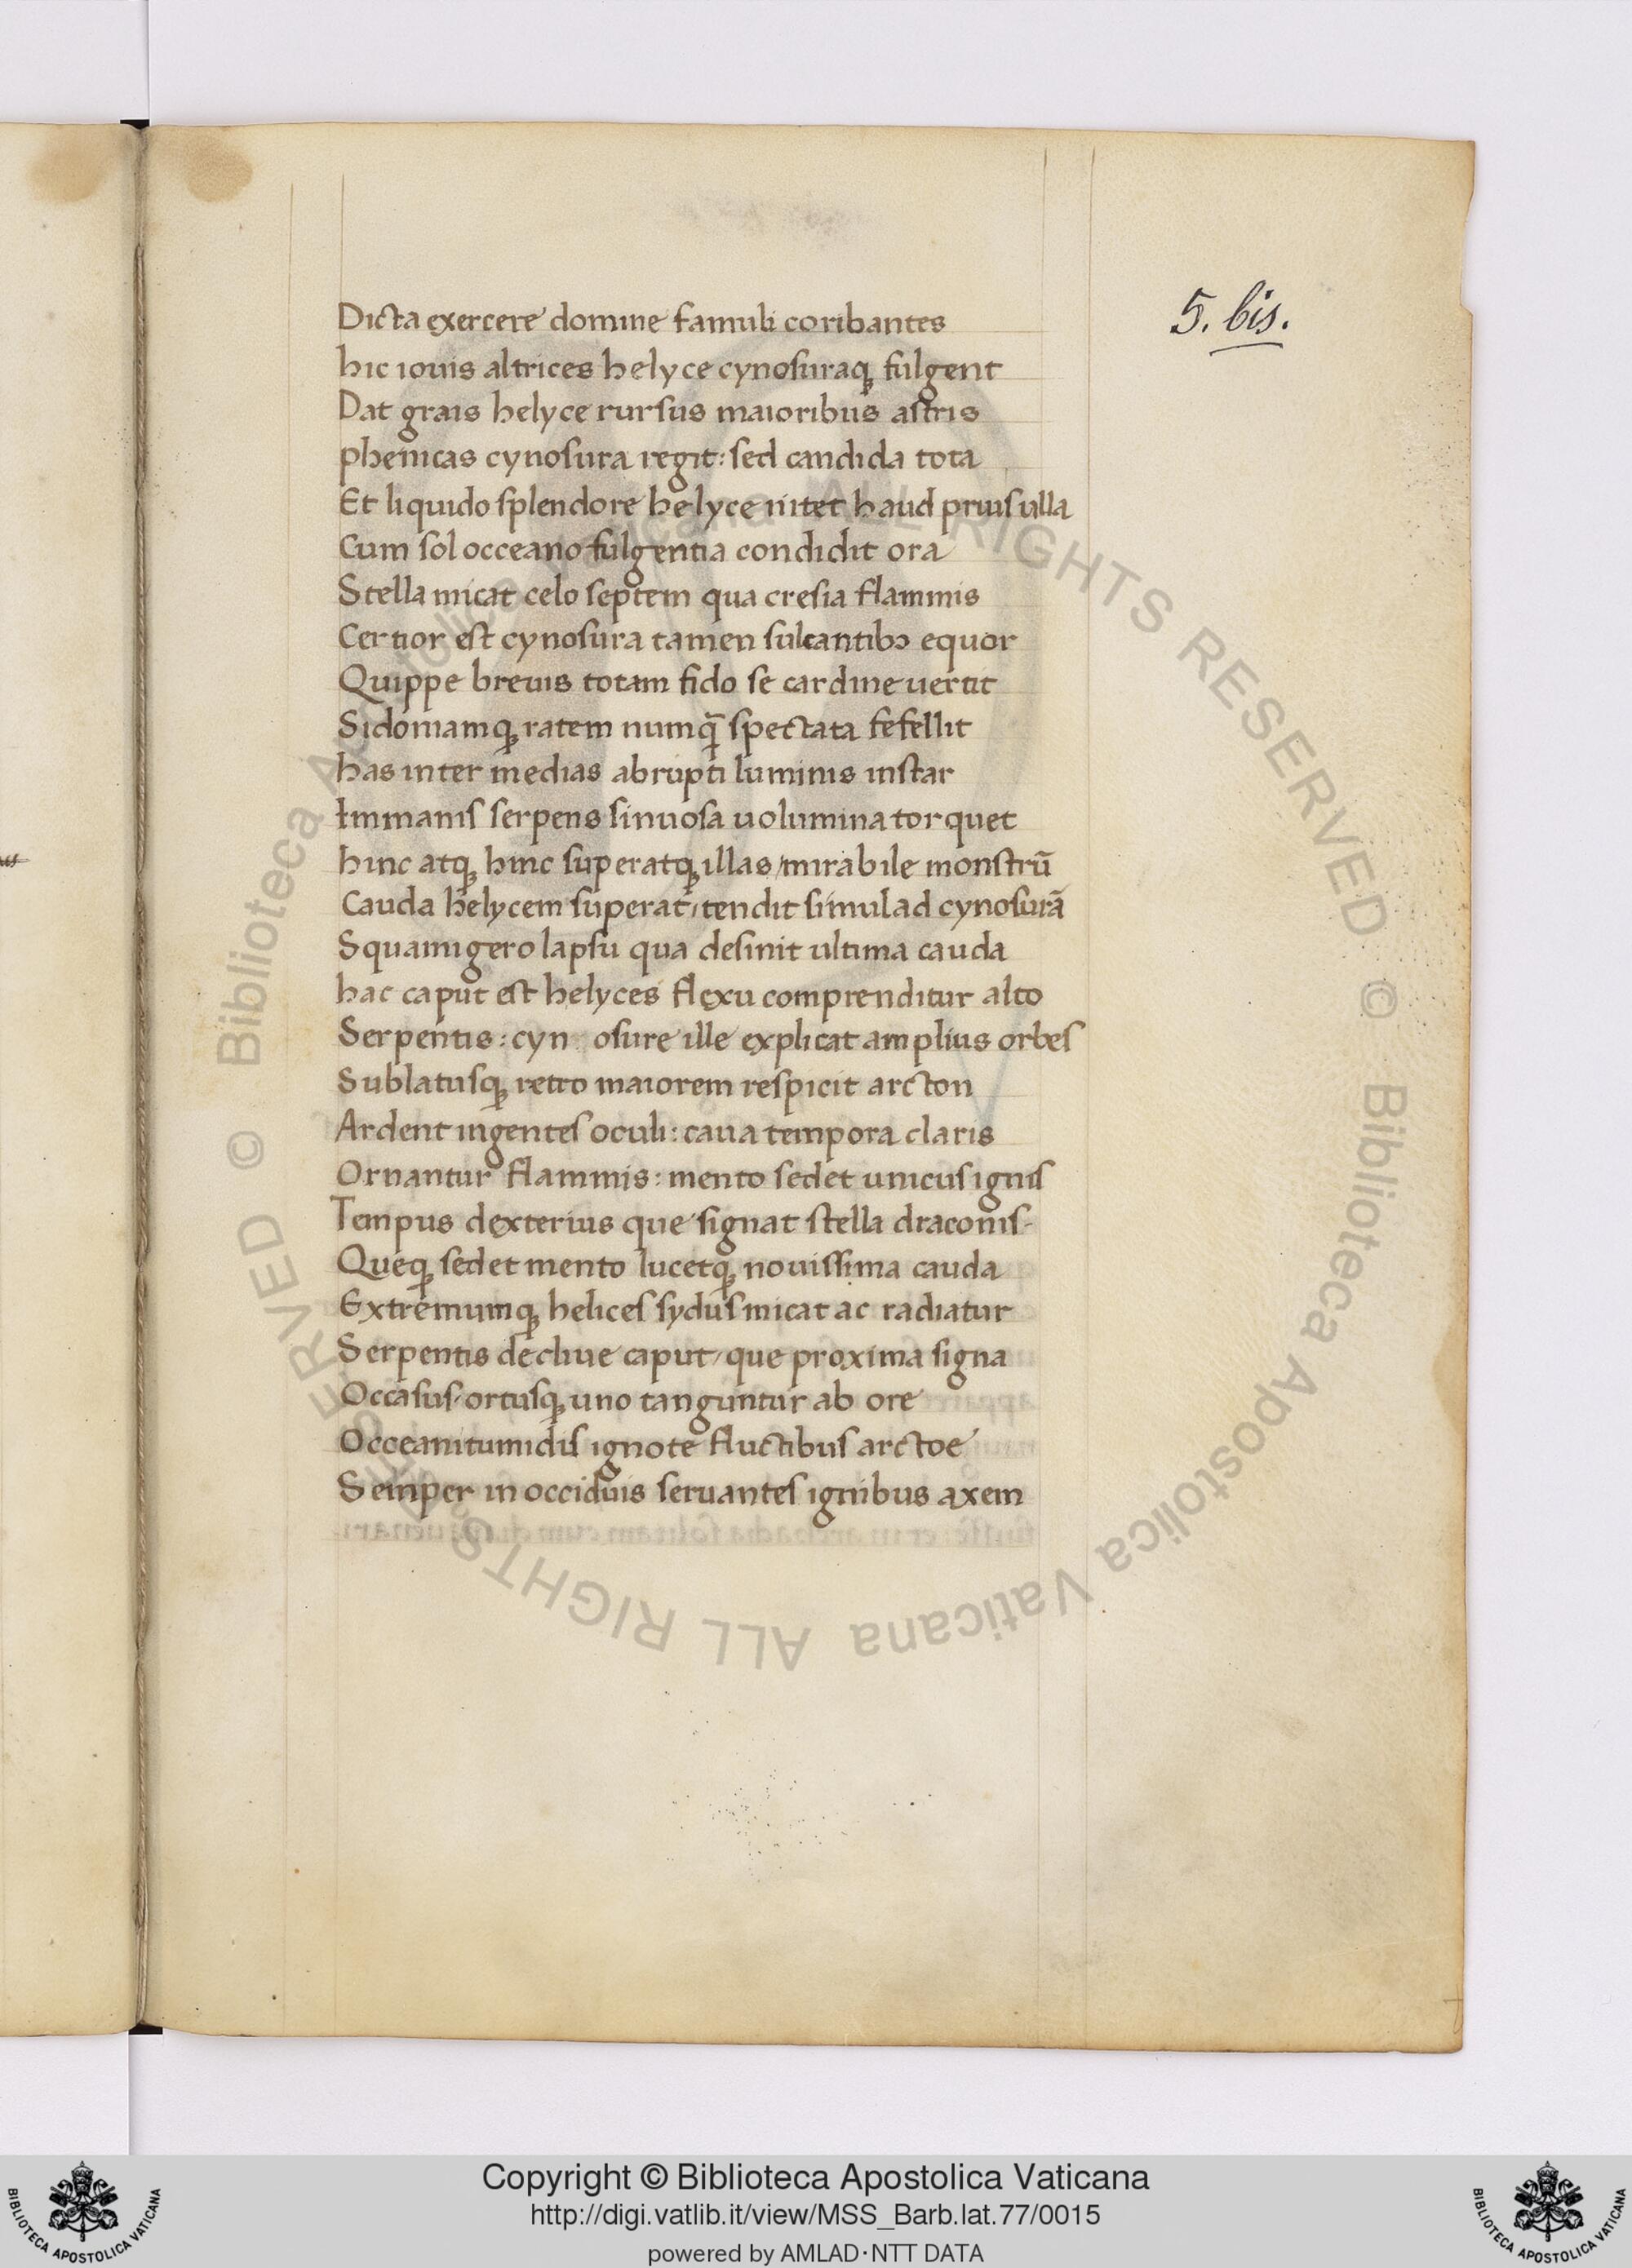 5. bis.
Dicta exercere domine famuli coribantes
hic iouis altrices helyce cynosuraqꝫ fulgent
Dat grais helyce rursus maioribus astris
phenicas cynosura regit: sed candida tota
Et liquido splendore helyce nitet haud prius ulla
Cum sol occeano fulgentia condidit ora
Stella micat celo septem qua cresia flammis
Certior est cynosura tamen sulcantibꝰ equor
Quippe breuis totam fido se cardine uertit
Sidoniamqꝫ ratem numꝗ̄ spectata fefellit
has inter medias abrupti luminis instar
Immanis serpens sinuosa uolumina torquet
hinc atqꝫ hinc superatqꝫ illas / mirabile monstrū
Cauda helycem superat / tendit simul ad cynosurā
Squamigero lapsu qua desinit ultima cauda
hac caput est helyces flexu comprenditur alto
Serpentis: cyn osure ille explicat amplius orbes
Sublatusqꝫ retro maiorem respicit arcton
Ardent ingentes oculi: caua tempora claris
Ornantur flammis: mento sedet unicus ignis
Tempus dexterius que signat stella draconis-
Queqꝫ sedet mento lucetqꝫ nouissima cauda
Extremumqꝫ helices sydus micat ac radiatur
Serpentis decliue caput / que proxima signa
Occasus / ortusqꝫ uno tanguntur ab ore
Occeani tumidis ignote fluctibus arctoe
Semper in occiduis seruantes ignibus axem
© Biblioteca Apostolica Vaticana ALL RIGHTS RESERVED
© Biblioteca Apostolica Vaticana ALL RIGHTS RESERVED
Copyright © Biblioteca Apostolica Vaticana
http://digi.vatlib.it/view/MSS_Barb.lat.77/0015
powered by AMLAD·NTT DATA
BIBLIOTECA APOSTOLICA VATICANA
BIBLIOTECA APOSTOLICA VATICANA